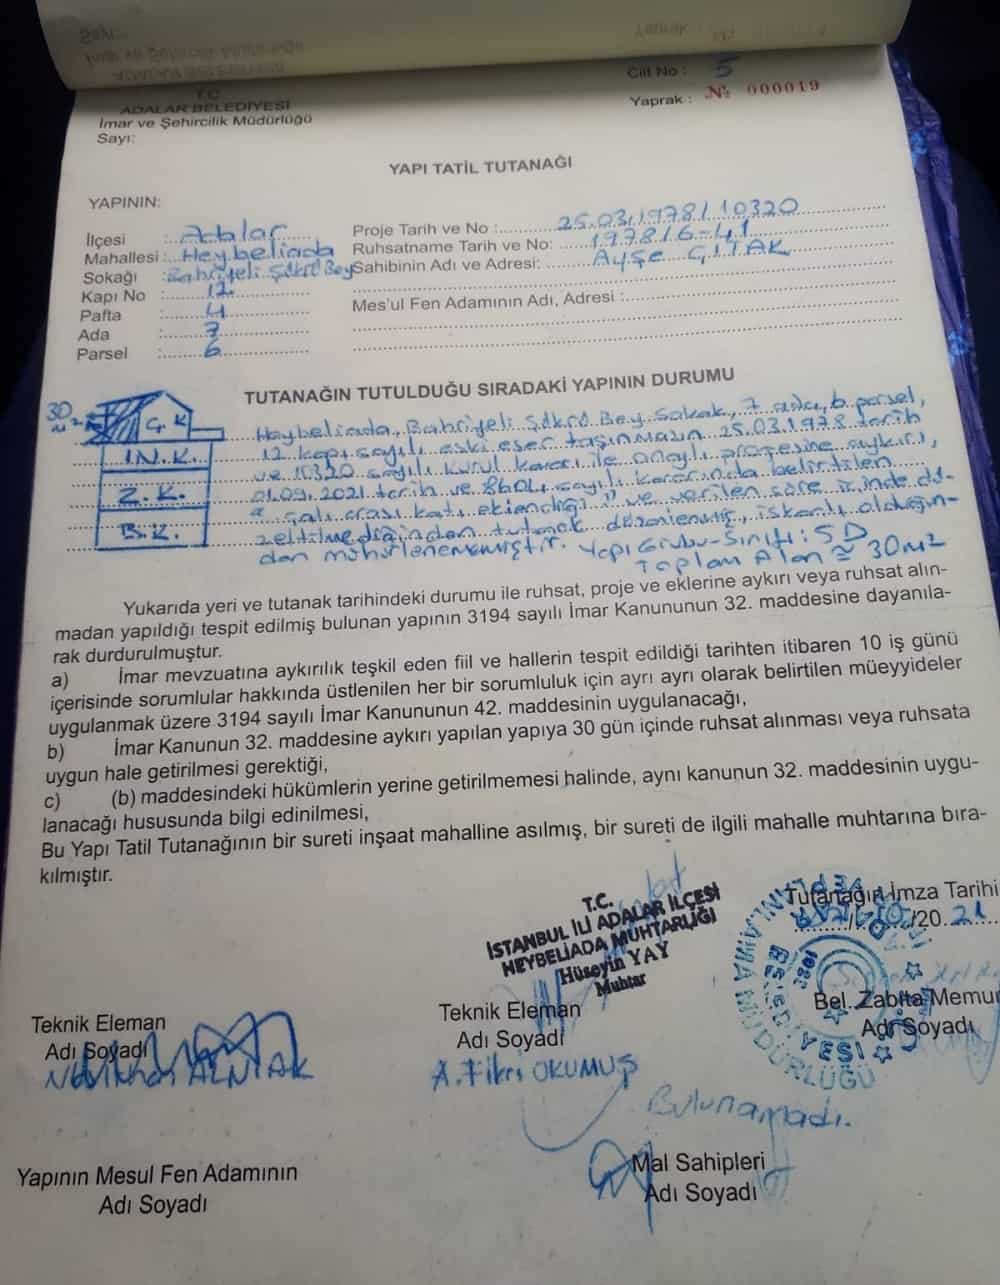 Cilt No : 5
Yaprak : № 000019
T.C.
ADALAR BELEDİYESİ
İmar ve Şehircilik Müdürlüğü
Sayı:
YAPI TATİL TUTANAĞI
YAPININ:
İlçesi : Adalar
Mahallesi : Heybeliada
Sokağı : Bahriyeli Şükrü Bey
Kapı No : 12
Pafta : 4
Ada : 7
Parsel : 6
Proje Tarih ve No : 25.03.1978/10320
Ruhsatname Tarih ve No: 1978/6-41
Sahibinin Adı ve Adresi: Ayşe ÇITAK
Mes'ul Fen Adamının Adı, Adresi :
TUTANAĞIN TUTULDUĞU SIRADAKİ YAPININ DURUMU
30 m²
Ç.K.
1.N.K.
Z.K.
B.K.
Heybeliada, Bahriyeli Şükrü Bey Sokak, 7 ada, 6 parsel,
12 kapı sayılı eski eser taşınmazın 25.03.1978 tarih
ve 10320 sayılı kurul kararı ile onaylı projesine aykırı,
01.09.2021 tarih ve 8604 sayılı kararında belirtilen
" çatı arası katı eklendiği" ve verilen süre içinde dü-
zeltilmediğinden tutanak düzenlenmiş, iskanlı olduğun-
dan mühürlenememiştir. Yapı Grubu-Sınıfı: 5D
Toplam Alan ≅ 30m²
Yukarıda yeri ve tutanak tarihindeki durumu ile ruhsat, proje ve eklerine aykırı veya ruhsat alın-
madan yapıldığı tespit edilmiş bulunan yapının 3194 sayılı İmar Kanununun 32. maddesine dayanıla-
rak durdurulmuştur.
a) İmar mevzuatına aykırılık teşkil eden fiil ve hallerin tespit edildiği tarihten itibaren 10 iş günü
içerisinde sorumlular hakkında üstlenilen her bir sorumluluk için ayrı ayrı olarak belirtilen müeyyideler
uygulanmak üzere 3194 sayılı İmar Kanununun 42. maddesinin uygulanacağı,
b) İmar Kanunun 32. maddesine aykırı yapılan yapıya 30 gün içinde ruhsat alınması veya ruhsata
uygun hale getirilmesi gerektiği,
c) (b) maddesindeki hükümlerin yerine getirilmemesi halinde, aynı kanunun 32. maddesinin uygu-
lanacağı hususunda bilgi edinilmesi,
Bu Yapı Tatil Tutanağının bir sureti inşaat mahalline asılmış, bir sureti de ilgili mahalle muhtarına bıra-
kılmıştır.
T.C.
İSTANBUL İLİ ADALAR İLÇESİ
HEYBELİADA MUHTARLIĞI
Hüseyin YAY
Muhtar
Tutanağın İmza Tarihi
/20.21
BELEDİYESİ
MÜDÜRLÜĞÜ
Teknik Eleman
Adı Soyadı
ALNIAK
Teknik Eleman
Adı Soyadı
A. Fikri OKUMUŞ
Bel. Zabıta Memur
Adı Soyadı
Bulunamadı.
Yapının Mesul Fen Adamının
Adı Soyadı
Mal Sahipleri
Adı Soyadı